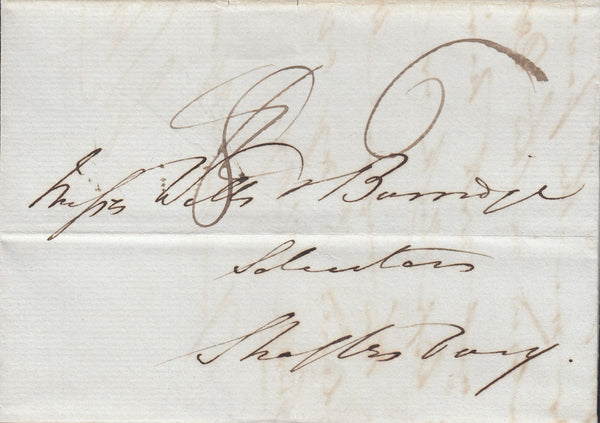 8
Messrs Wells & Burridge
Solicitors
Shaftesbury.